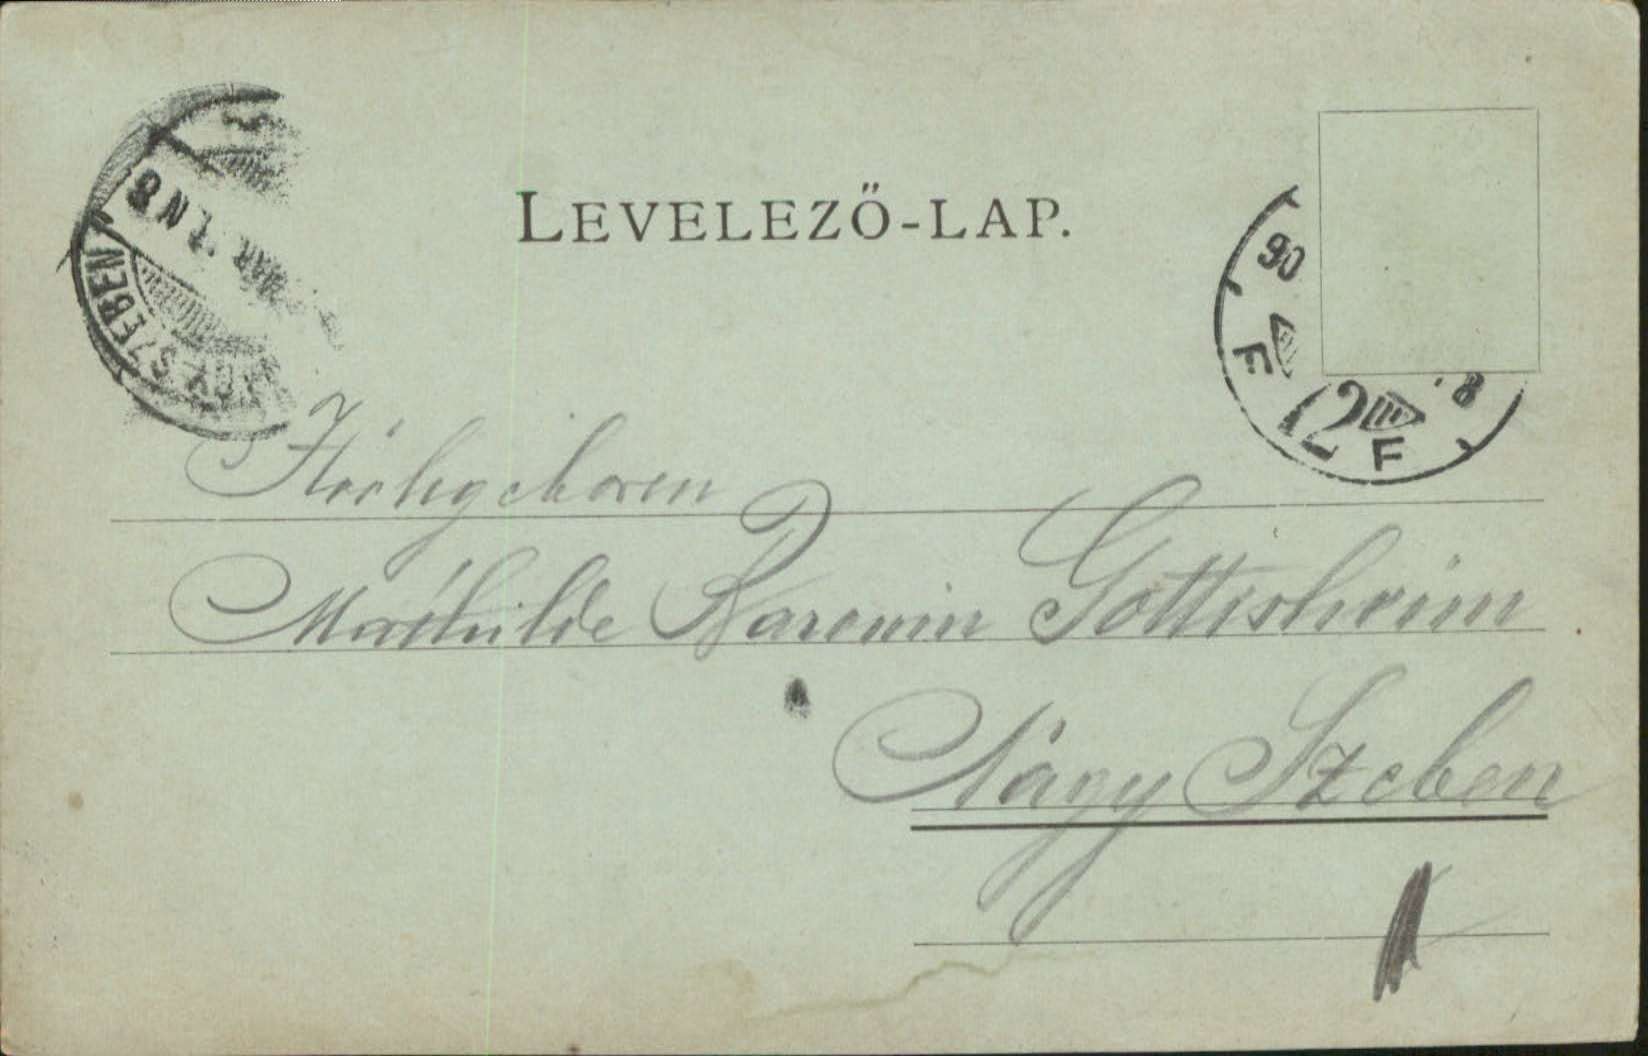 LEVELEZŐ-LAP.
8 N
SZEBEN
90
F 12 F
8
Hochgeboren
Mathilde Baronin Gottesheim
Nagy Szeben